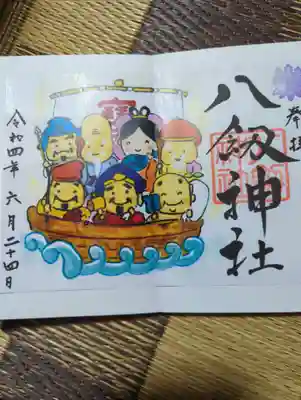 奉拝
八剱神社
令和四年六月二十四日